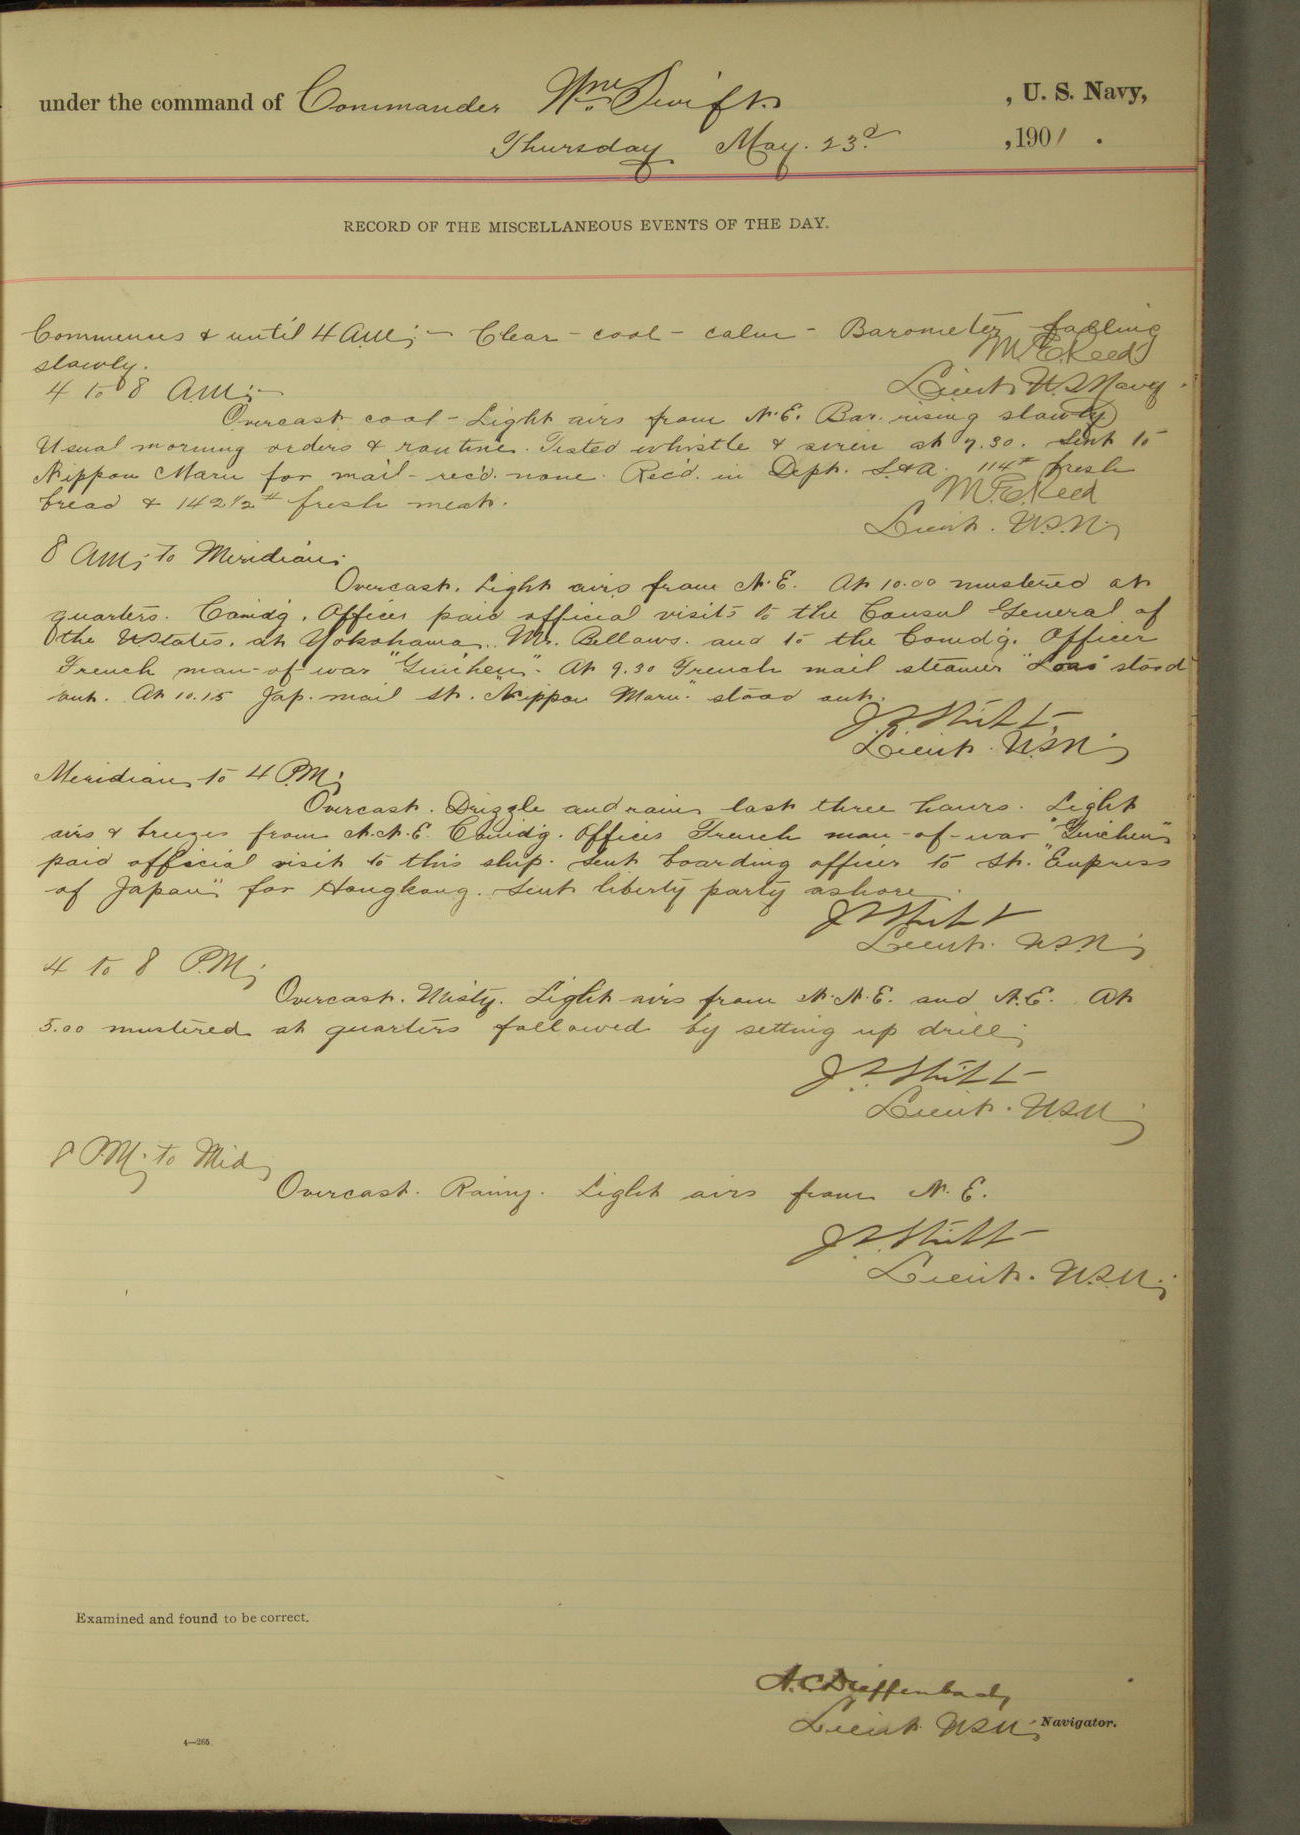 under the command of Commander Wm. Swift. , U. S. Navy,
Thursday May. 23d. , 1901 .
RECORD OF THE MISCELLANEOUS EVENTS OF THE DAY.
Commences & until 4 AM; - Clear - cool - calm - Barometer falling
slowly. M. E. Reed
4 to 8 A.M:- Lieut U S Navy.
Overcast cool - Light airs from N.E. Bar. rising slowly
Usual morning orders & routine. Tested whistle & siren at 7.30. Sent to
Nippon Maru for mail - rec'd. none. Rec'd. in Dept. S.&A. 114# fresh
bread & 142 1/2 # fresh meat. M. E. Reed
Lieut. U.S.N.;
8 AM; to Meridian;
Overcast. Light airs from N.E. At 10.00 mustered at
quarters. Comd'g. Officer paid official visits to the Consul General of
the UStates. at Yokohama. Mr. Bellows. and to the Comdg. Officer
French man-of-war "Guichen". At 9.30 French mail steamer "Loas" stood
out. At 10.15 Jap. mail st. "Nippon Maru." stood out.
Lieut. U.S.N.;
Meridian to 4 P.M;
Overcast. Drizzle and rain last three hours. Light
airs & breezes from N.N.E. Comd'g. Officer French man-of-war "Guichen"
paid official visit to this ship. Sent boarding officer to St. "Empress
of Japan" for Hongkong. Sent liberty party ashore.
Lieut. U.S.N.;
4 to 8 P.M;
Overcast. Misty. Light airs from N.N.E. and N.E. At
5.00 mustered at quarters followed by setting up drill;
Lieut. U.S.N.;
8 P.M; to Mid;
Overcast. Rainy. Light airs from N.E.
Lieut. U.S.N.;
Examined and found to be correct.
A.C. Dieffenbach,
Lieut. U.S.N.; Navigator.
4—265